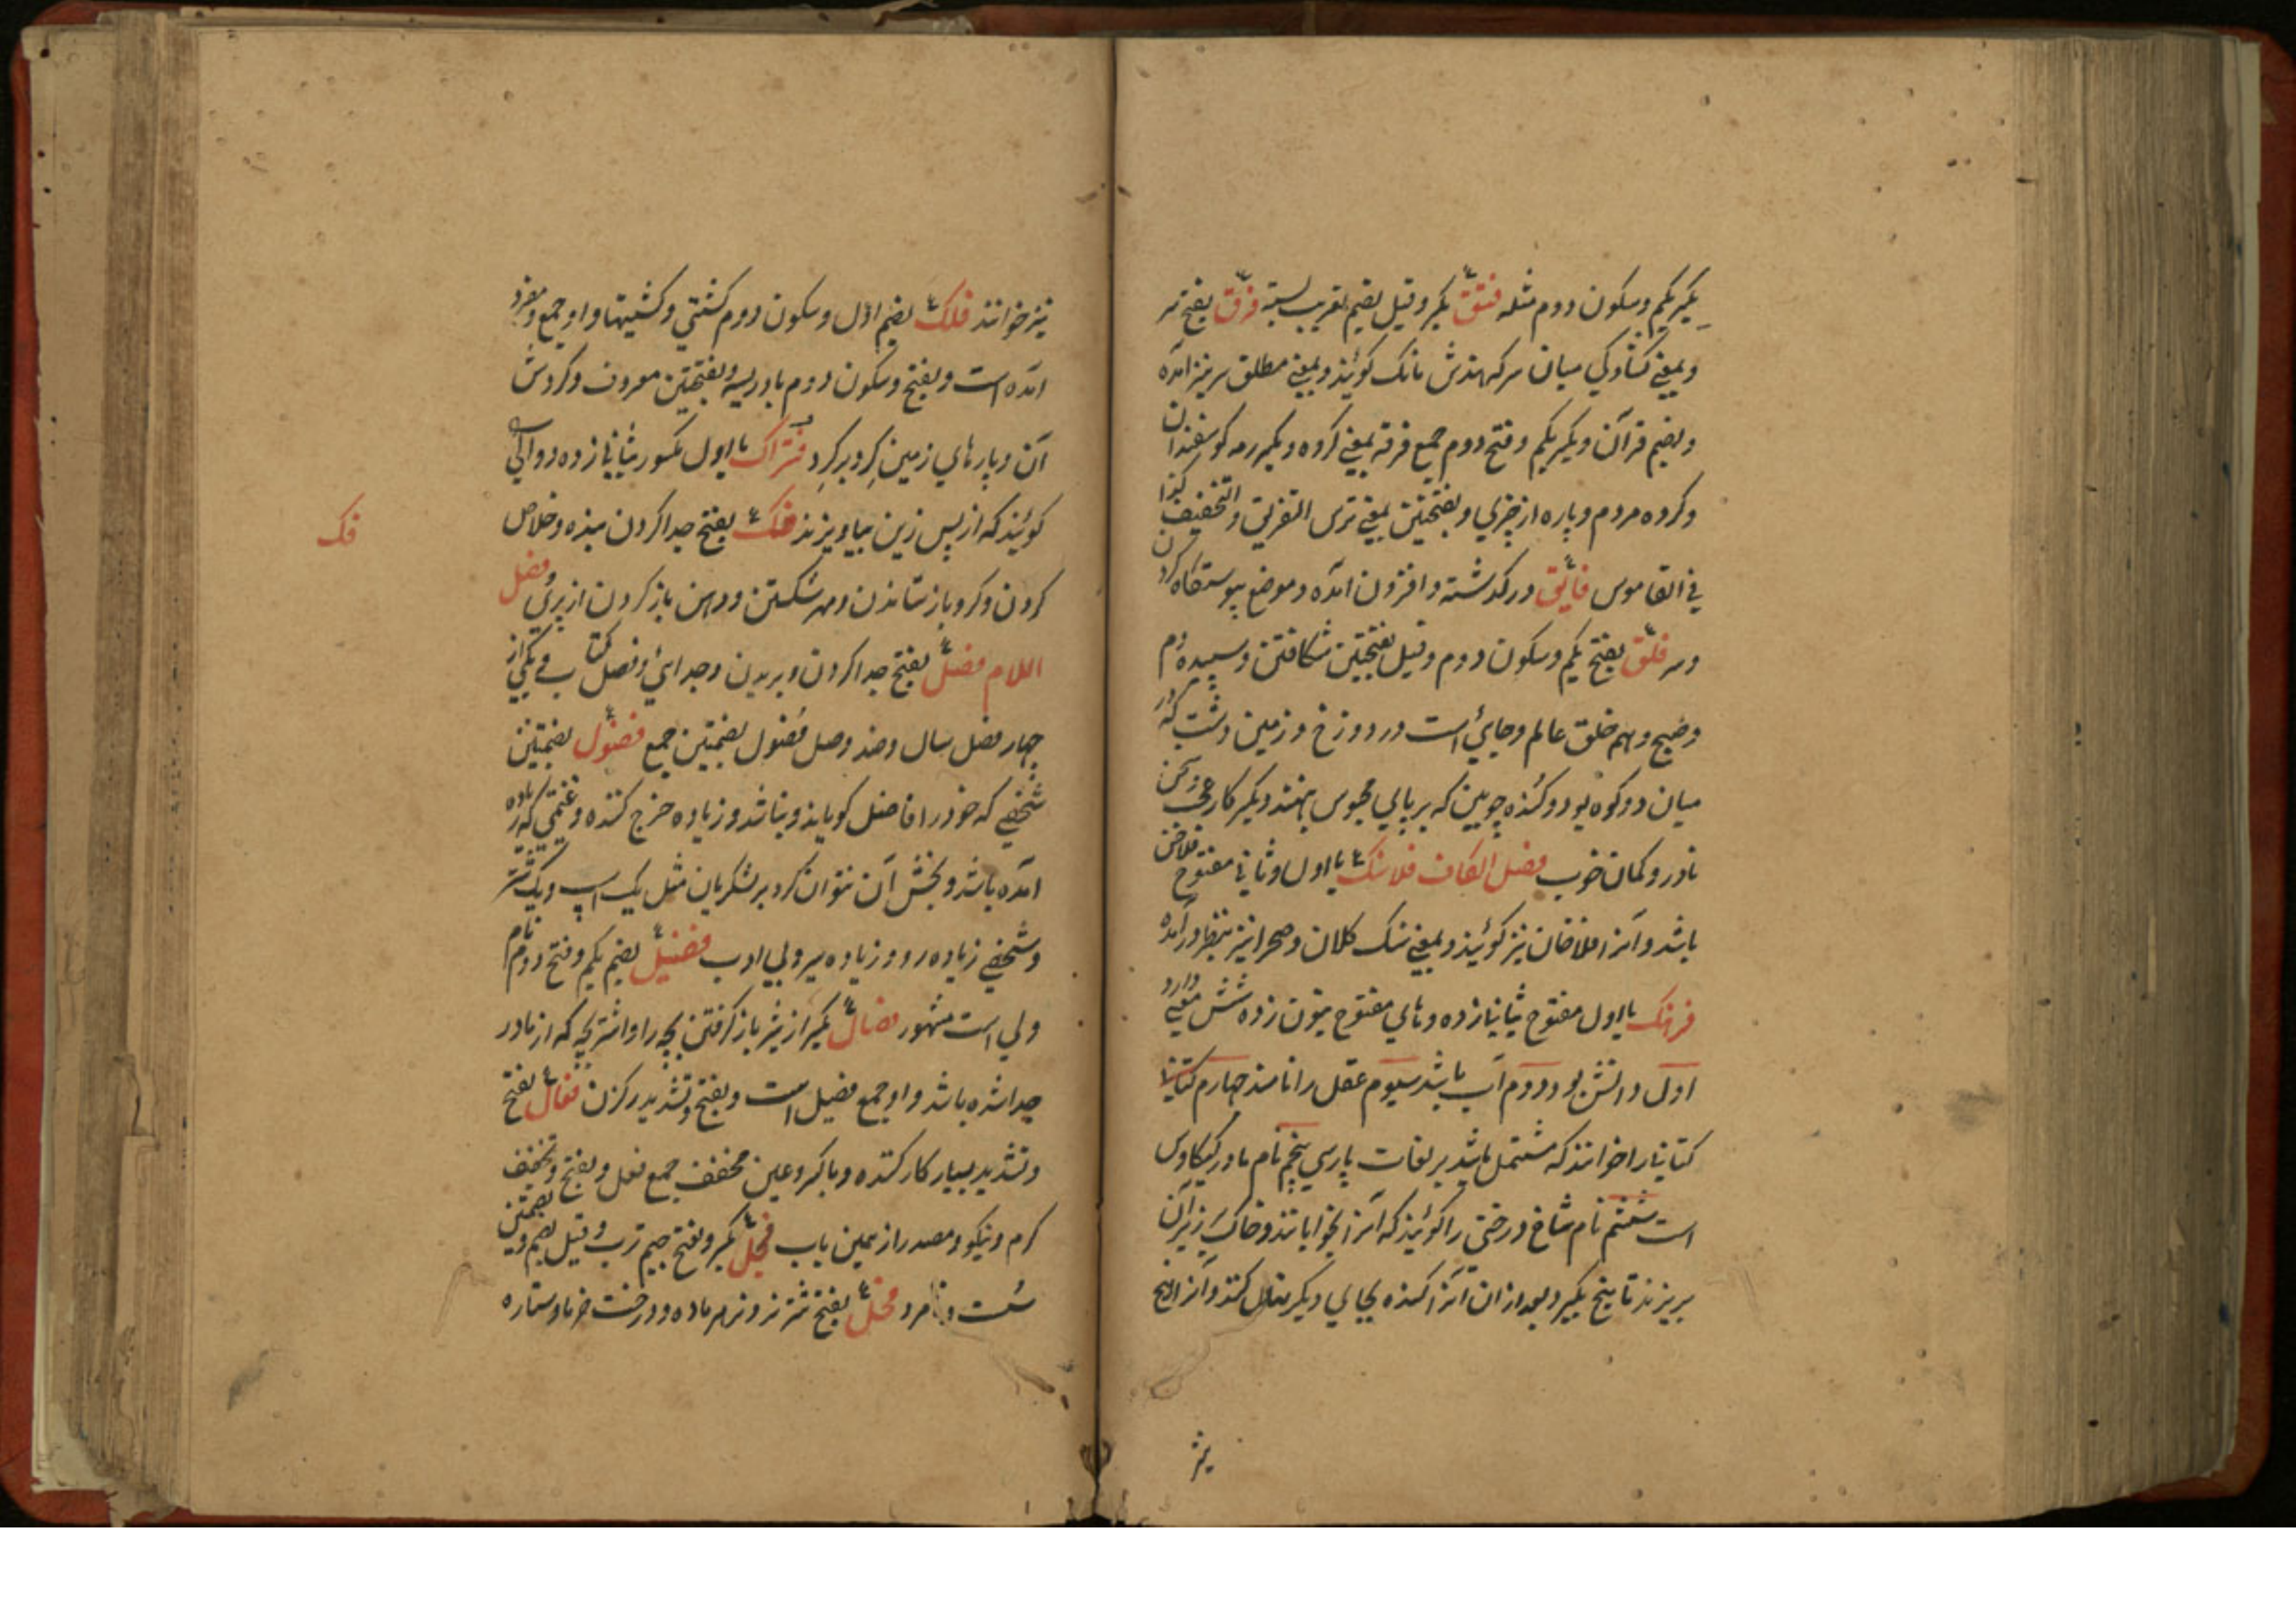 بکسر یکم و سکون دوم مثله فستق بکسر و قیل بضم بقریب پسته فرق بفتح سر
و بمعنی کشادگی میان سر که هندش مانک کویند و بمعنی مطلق سر نیز آمده
و بضم قرآن و بکسر یکم و فتح دوم جمع فرقه بمعنی کروه و بکسر رمه کوسفندان
و کروه مردم و پاره از چیزی و بفتحتین بمعنی ترس التفریق والتخفیف کذا
فی القاموس فائق در کذشته و افزون آمده و موضع پیوستگاه کردن
و سر فلق بفتح یکم و سکون دوم و قیل بفتحتین شکافتن و سپیده دم
و صبح و همه خلق عالم و جائی است در دوزخ و زمین دشت که در
میان دو کوه بود و کنده چوبین که بر پای محبوس نهند و بکسر کار عجب و سخن
نادر و کمان خوب فصل الکاف فلاسنک با اول و ثانی مفتوح فلاخن
باشد و آنرا فلاخان نیز کویند و بمعنی سنک کلان و صحرا نیز بنظر در آمده
فرهنک با اول مفتوح بثانی زده و های مفتوح بنون زده شش معنی دارد
اول دانش بود دوم ادب باشد سیوم عقل را نامند چهارم کتابی
کتابی را خوانند که مشتمل باشد بر لغات پارسی پنجم نام مادر کیکاوس
است ششم نام شاخ درختی را کویند که آنرا بخوابانند و خاک بر زبر آن
بریزند تا بیخ بکیرد و بعد از آن آنرا کنده بجای دیکر نهال کنند و آنرا بیخ
نیز
نیز خوانند فلک بضم اول و سکون دوم کشتی و کشتیها و او جمع و مفرد
آمده است و بفتح و سکون دوم بادریسه و بفتحتین معروف و کردش
آن و پارهای زمین کرد بر کرد فتراک با اول مکسور بثانی زده دوالی
کویند که از پس زین بیاویزند فک بفتح جدا کردن بنده و خلاص
فک
کردن و کرو باز ستاندن و مهر شکستن و دهن باز کردن از پیری فصل
اللام فصل بفتح جدا کردن و بریدن و جدائی و فصل کتاب و یکی از
چهار فصل سال و ضد وصل فصول بضمتین جمع فضول بضمتین
شخصی که خود را فاضل کویاند و نباشد و زیاده خرج کننده و غنیمتی که زیاده
آمده باشد و بخش آن نتوان کرد بر لشکریان مثل یک اسپ و یک شتر
و شخصی زیاده رو و زیاده سر و بی ادب فضیل بضم یکم و فتح دوم نام
ولی است مشهور فصال بکسر از شیر باز کرفتن بچه را و اشتر بچه که از مادر
جدا شده باشد و او جمع فصیل است و بفتح و تشدید رک زن فعال بفتح
و تشدید بسیار کار کننده و با کسر و عین مخفف جمع فعل و بفتح و تخفیف
کرم و نیکو و مصدر از همین باب فجل بکسر و بفتح جیم ترب و قیل بضم و بضمتین
سست و نامرد فحل بفتح شتر نر و نر هر ماده و درخت خرما و ستاره